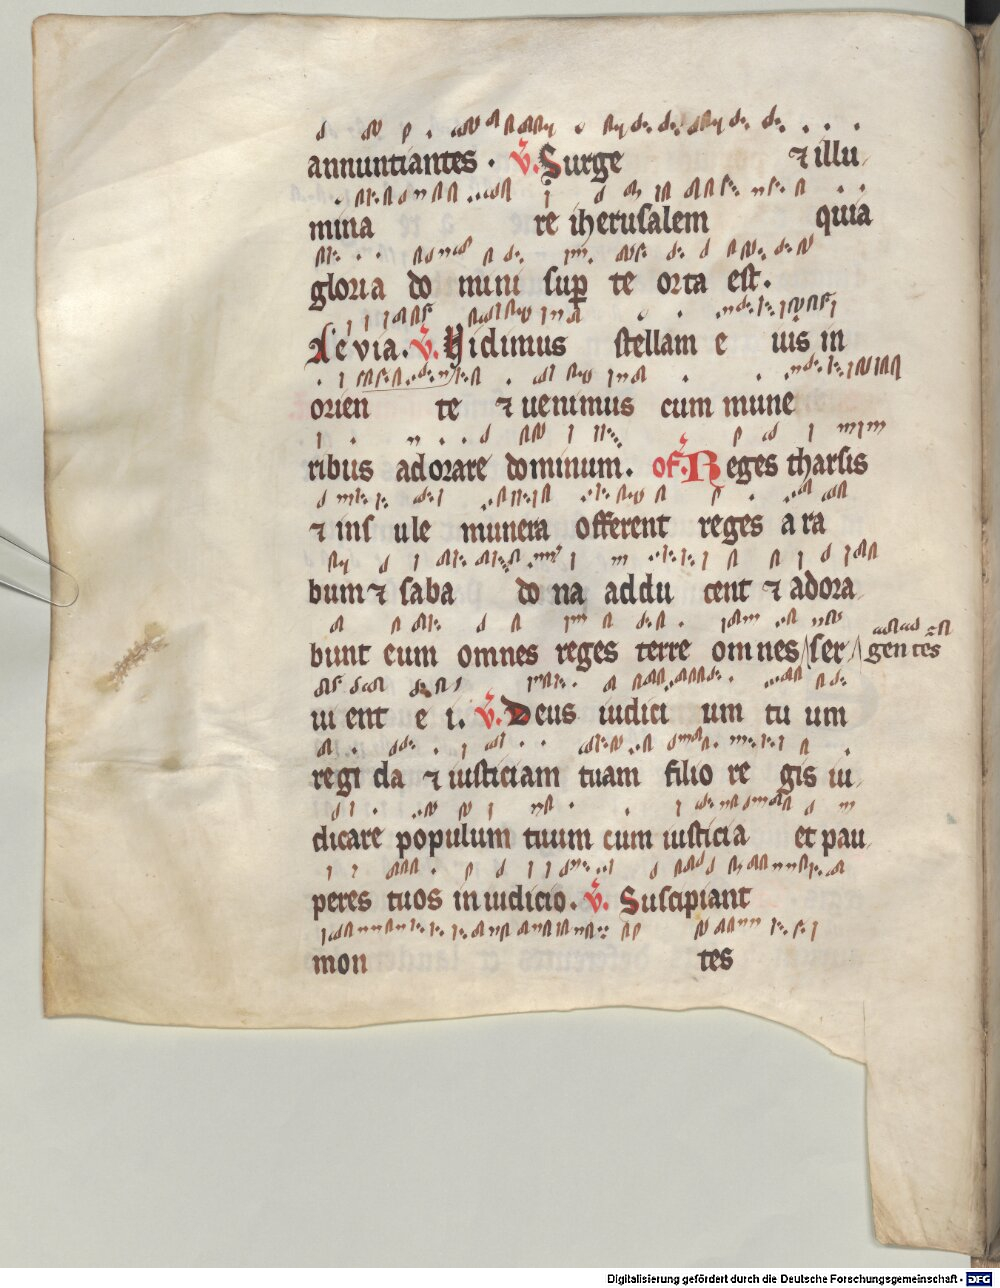 annuntiantes . v. Surge ⁊ illu
mina re iherusalem quia
gloria do mini sup te orta est.
Ae via. v. Vidimus stellam e ius in
orien te ⁊ uenimus cum mune
ribus adorare dominum. of. Reges tharsis
⁊ ins ule munera offerent reges a ra
bum ⁊ saba do na addu cent ⁊ adora
bunt eum omnes reges terre omnes ser gen tes
ui ent e i. v. Deus iudici um tu um
regi da ⁊ iusticiam tuam filio re gis iu
dicare populum tuum cum iusticia et pau
peres tuos in iudicio. v. Suscipiant
mon tes
Digitalisierung gefördert durch die Deutsche Forschungsgemeinschaft - DFG